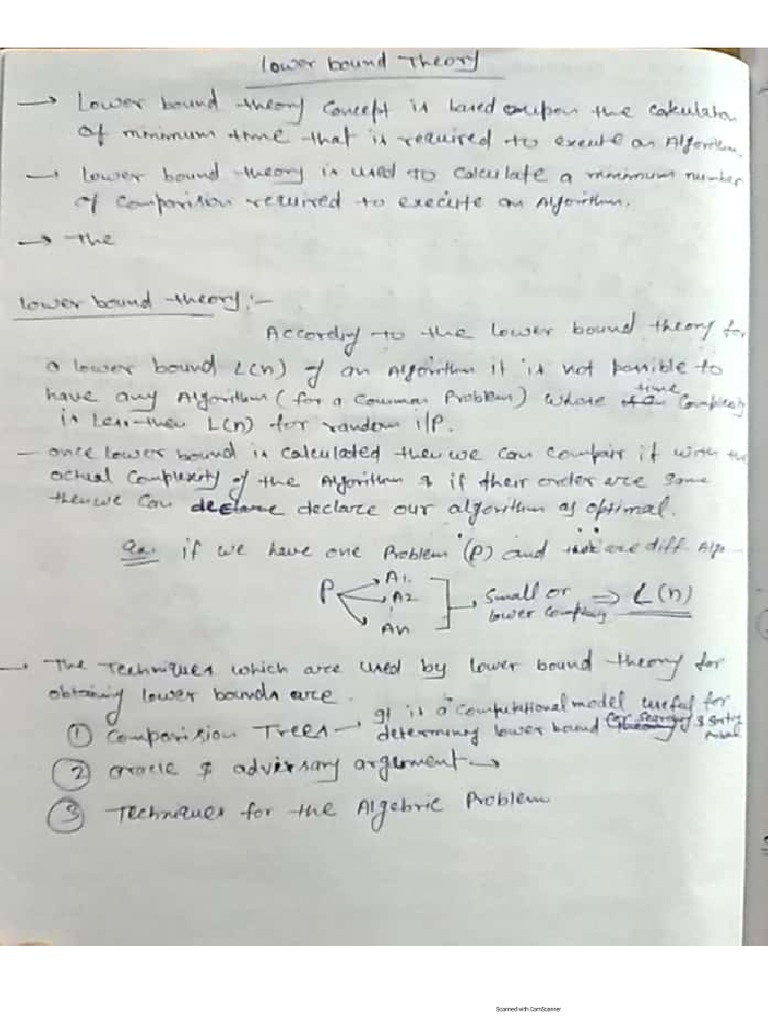 Lower bound Theory
→ Lower bound theory Concept is based upon the calculation
of minimum time that is required to execute an Algorithm.
→ Lower bound theory is used to calculate a minimum number
of Comparision required to execute an Algorithm.
→ The
Lower bound theory:-
According to the lower bound theory for
a lower bound L(n) of an Algorithm it is not possible to
have any Algorithm (for a Common Problem) whose time Complexity
is less then L(n) for random i/p.
- once lower bound is calculated then we can compair it with the
actual Complexity of the Algorithm & if their order are same
then we can declare declare our algorithm as optimal.
Ex: if we have one Problem (P) and there are diff Algo
P → A1, A2, An → Small or lower complexity ⇒ L(n)
→ The Techniques which are used by lower bound theory for
obtaining lower bounds are.
① Comparision Trees → It is a computational model useful for
determining lower bound for searching & sorting
② oracle & adversary argument →
③ Techniques for the Algebric Problem
Scanned with CamScanner